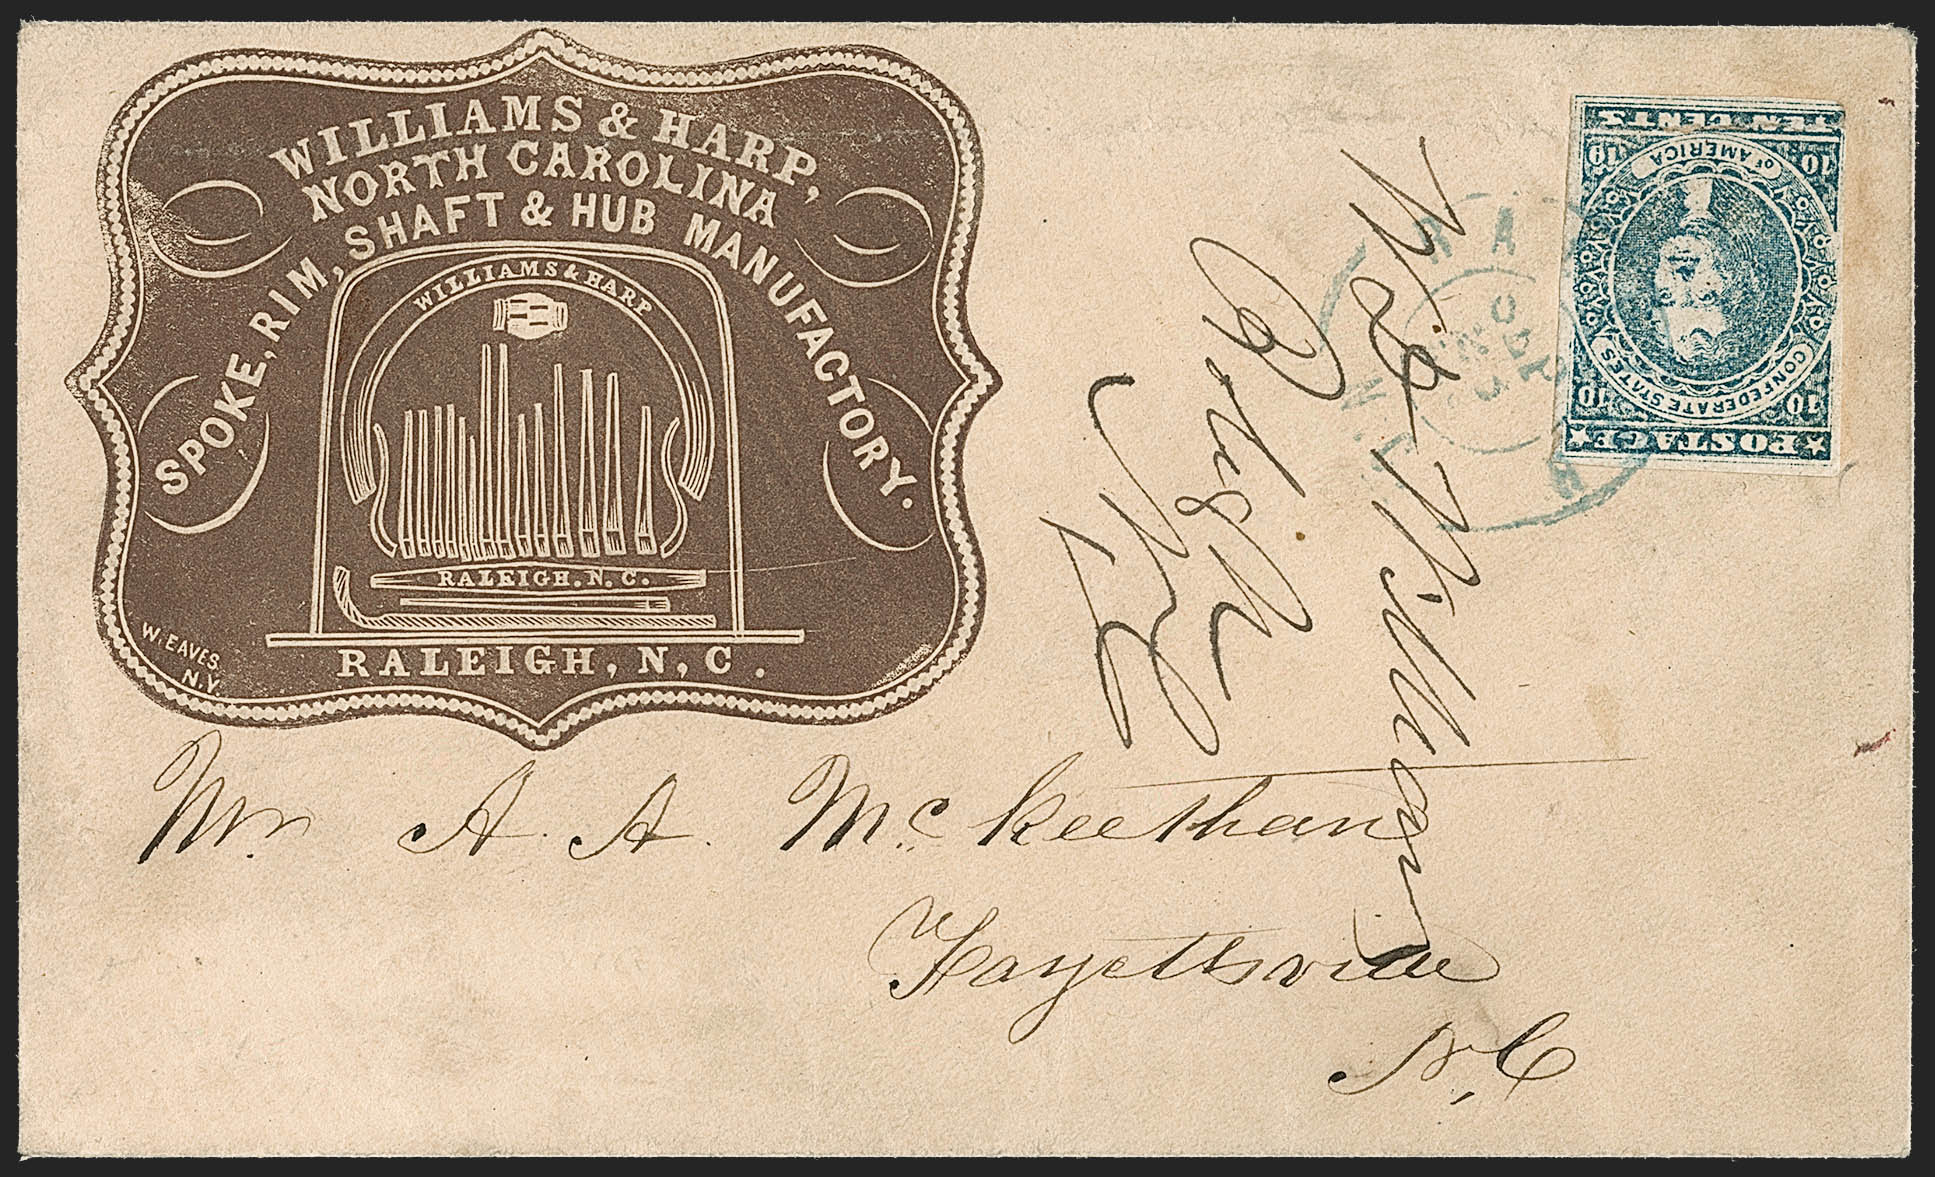 WILLIAMS & HARP,
NORTH CAROLINA
SPOKE, RIM, SHAFT & HUB MANUFACTORY.
WILLIAMS & HARP
RALEIGH. N. C.
RALEIGH, N, C.
W. EAVES.
N.Y.
TEN CENTS
10 10
OF AMERICA
CONFEDERATE STATES
10 10
POSTAGE
Williams
Raleigh
N C
Mr A. A. McKeethan
Fayetteville
N, C